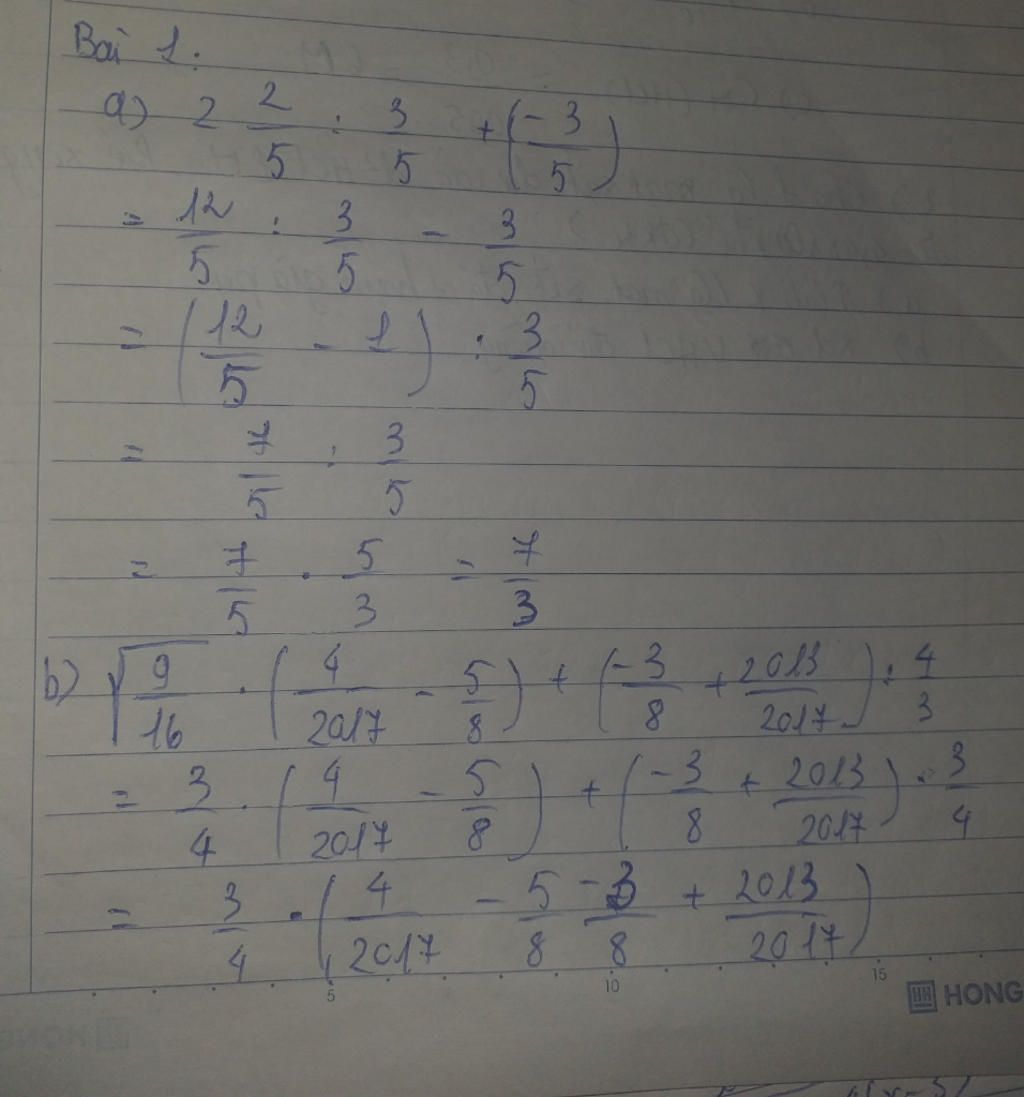 Bài 1:
a) 2 2/5 : 3/5 + (-3/5)
= 12/5 : 3/5 - 3/5
= (12/5 - 1) : 3/5
= 7/5 : 3/5
= 7/5 . 5/3 = 7/3
b) √(9/16) . (4/2017 - 5/8) + (-3/8 + 2013/2017) : 4/3
= 3/4 . (4/2017 - 5/8) + (-3/8 + 2013/2017) . 3/4
= 3/4 . (4/2017 - 5/8 -3/8 + 2013/2017)
5 10 15
HONG